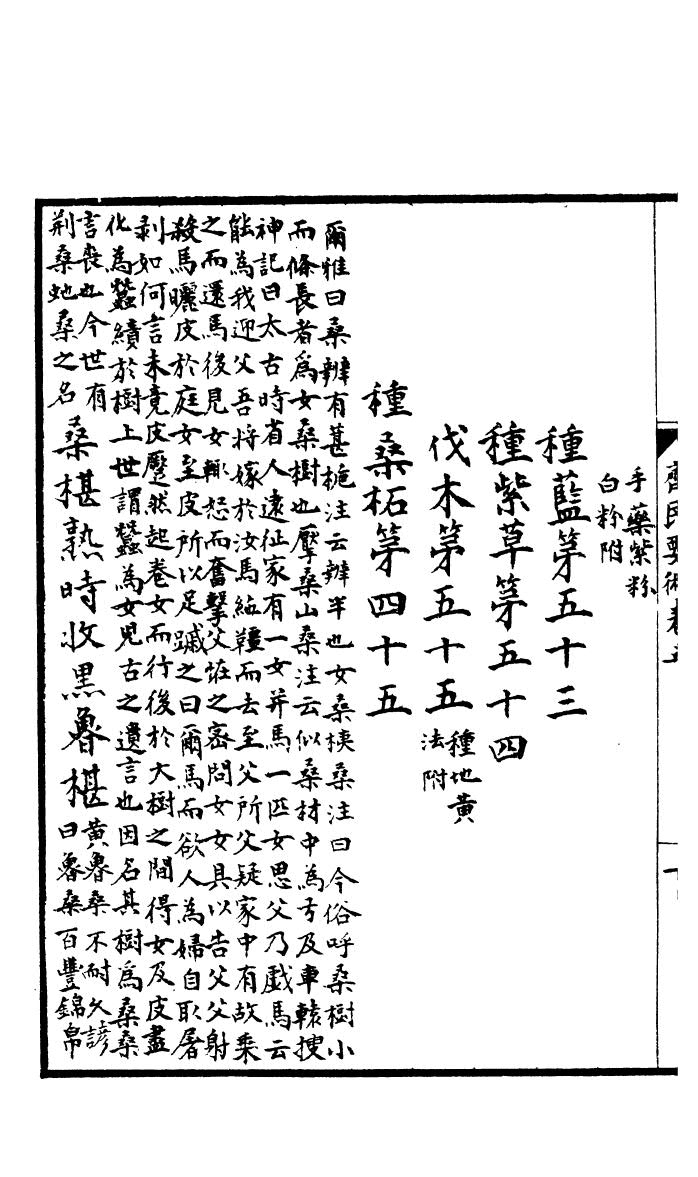 齊民要術卷五
手藥紫粉
白粉附
種藍第五十三
種紫草第五十四
伐木第五十五種地黃
法附
種桑柘第四十五
爾雅曰桑辨有葚梔注云辨半也女桑桋桑注曰今俗呼桑樹小
而條長者爲女桑樹也檿桑山桑注云似桑材中為弓及車轅搜
神記曰太古時省人遠征家有一女并馬一匹女思父乃戲馬云
能為我迎父吾將嫁於汝馬絕韁而去至父所父疑家中有故乘
之而還馬後見女輒怒而奮擊父怪之密問女女具以告父父射
殺馬曬皮於庭女至皮所以足蹴之曰爾馬而欲人為婦自取屠
剥如何言未竟皮蹷然起卷女而行後於大樹之間得女及皮盡
化為蠶績於樹上世謂蠶為女兒古之遺言也因名其樹爲桑桑
言喪也今世有
荆桑地桑之名
桑椹熟時收黑魯椹
黃魯桑不耐久諺
曰魯桑百豐錦帛